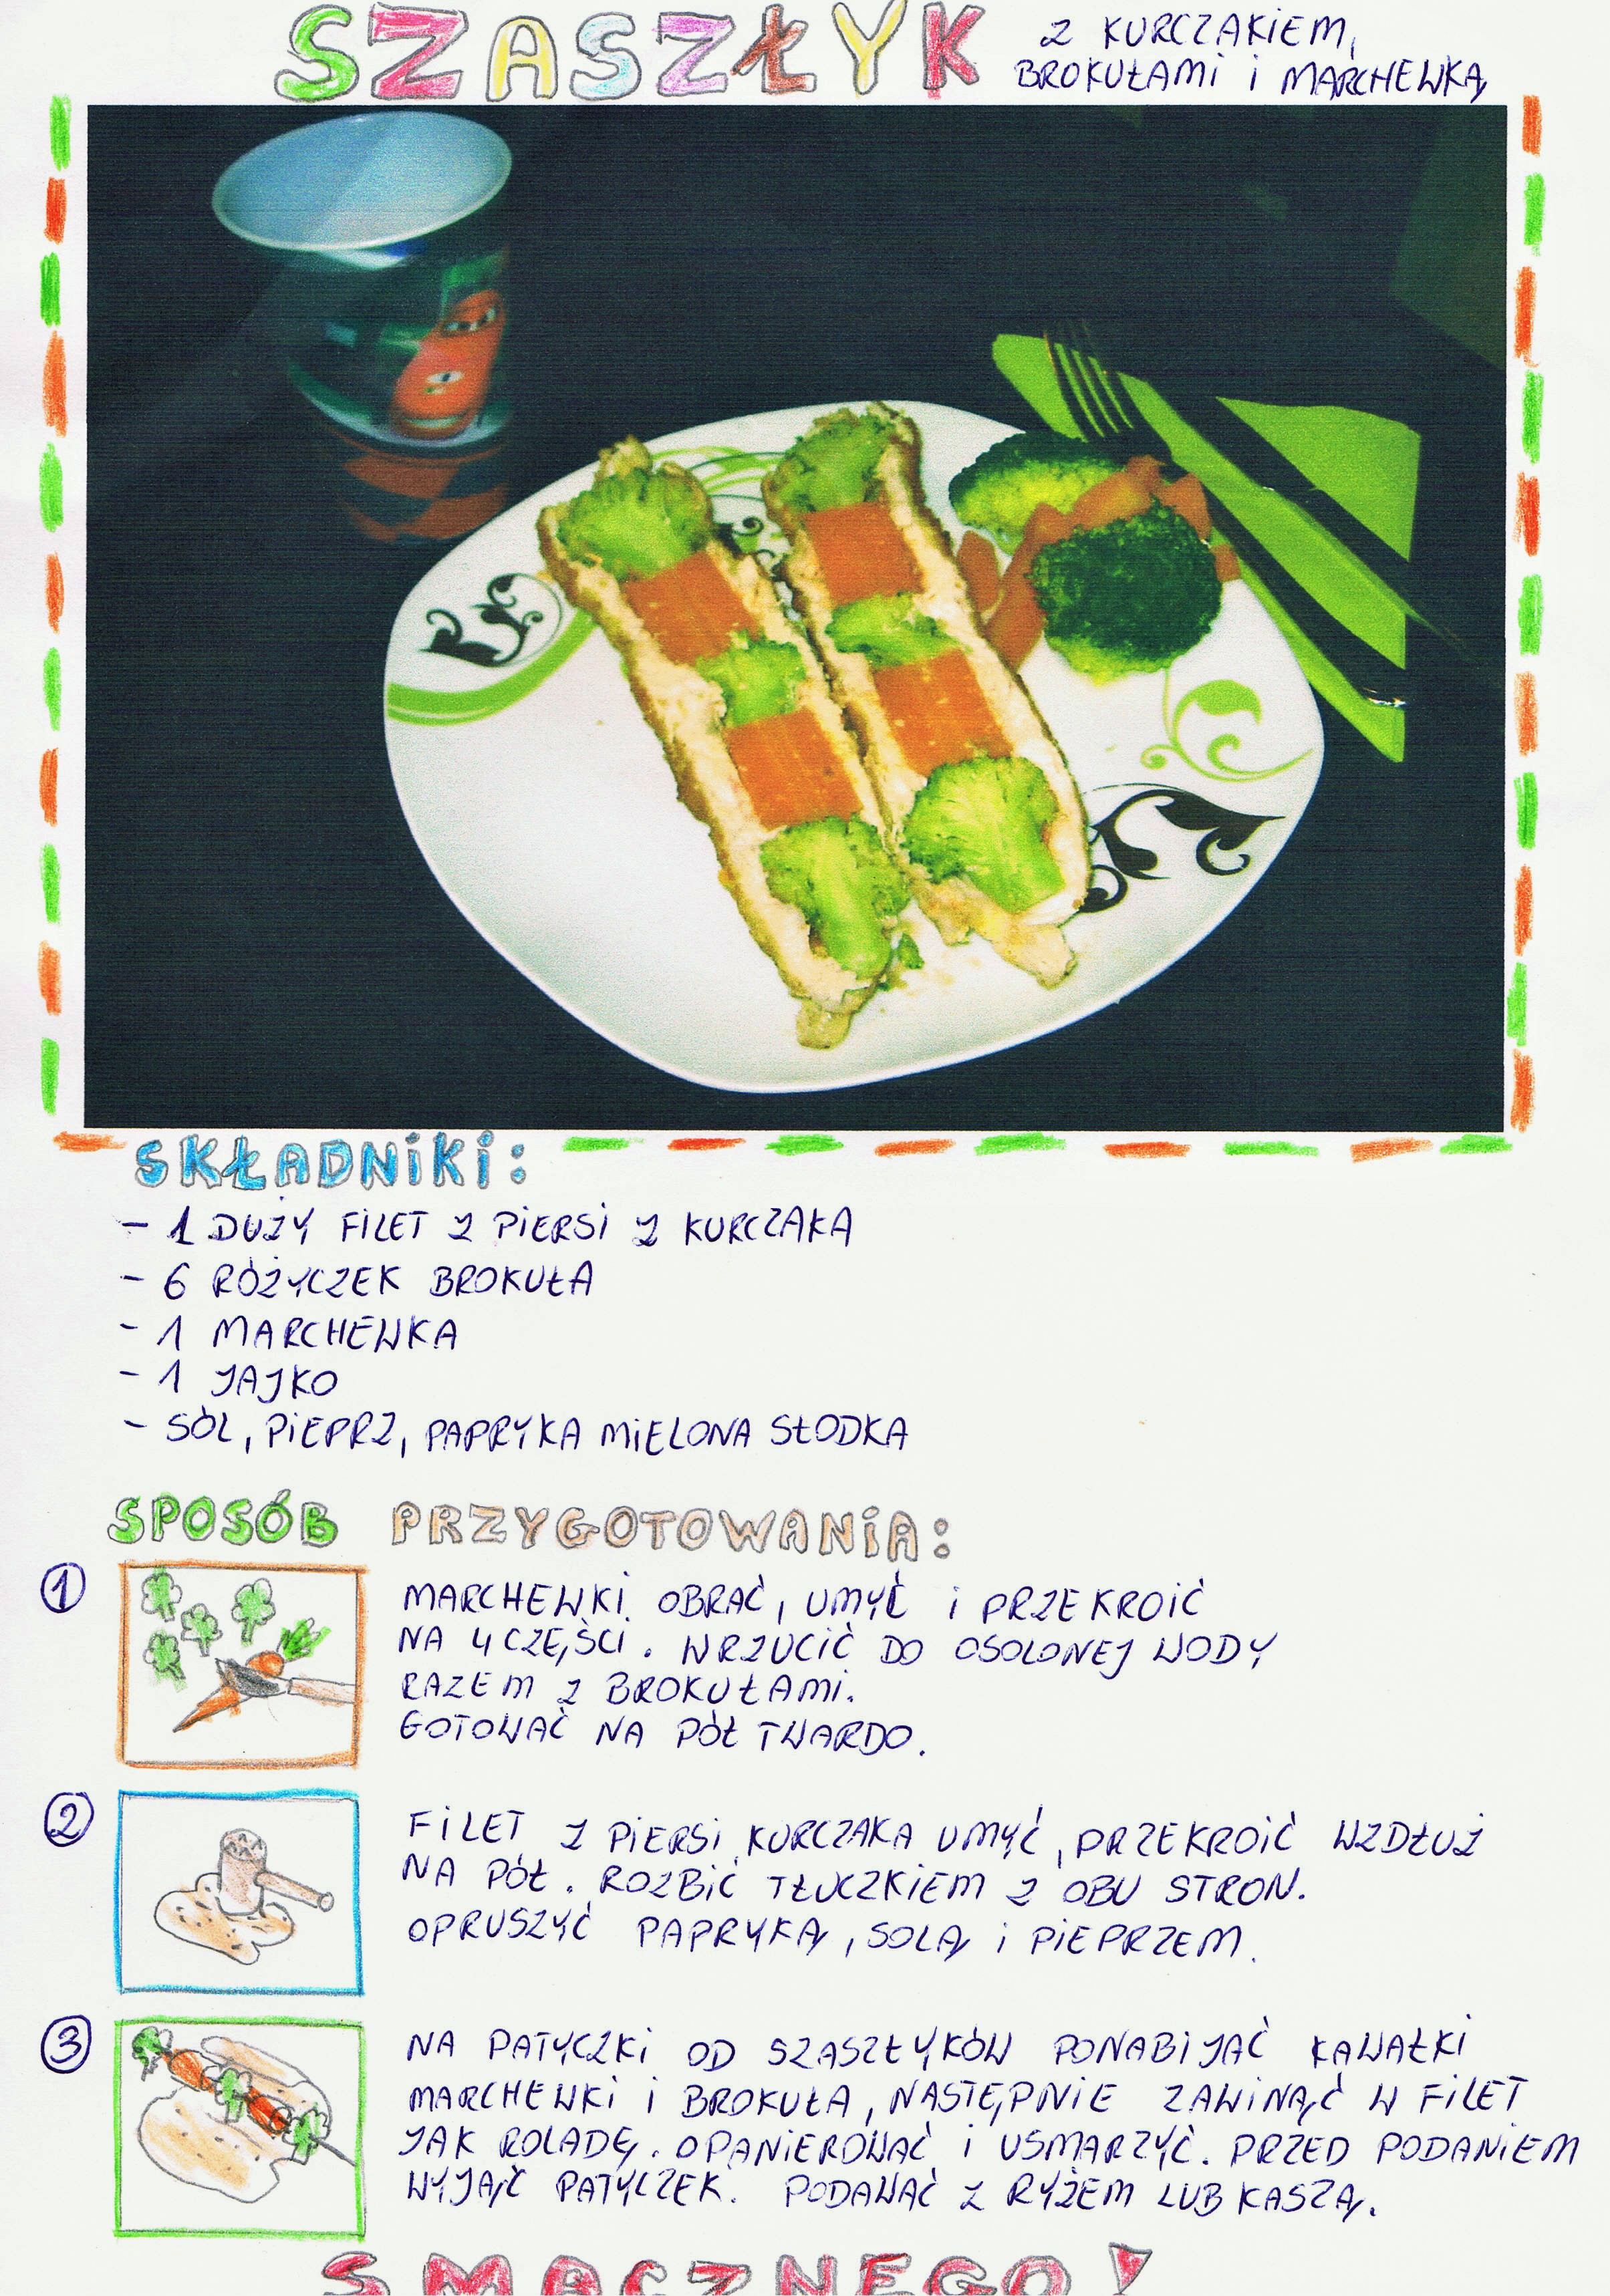 SZASZŁYK Z KURCZAKIEM,
BROKUŁAMI I MARCHEWKĄ
SKŁADNIKI:
- 1 DUŻY FILET Z PIERSI Z KURCZAKA
- 6 RÓŻYCZEK BROKUŁA
- 1 MARCHEWKA
- 1 JAJKO
- SÓL, PIEPRZ, PAPRYKA MIELONA SŁODKA
SPOSÓB PRZYGOTOWANIA:
1 MARCHEWKI OBRAĆ, UMYĆ I PRZEKROIĆ
NA 4 CZĘŚCI. WRZUCIĆ DO OSOLONEJ WODY
RAZEM Z BROKUŁAMI.
GOTOWAĆ NA PÓŁ TWARDO.
2 FILET Z PIERSI KURCZAKA UMYĆ, PRZEKROIĆ WZDŁUŻ
NA PÓŁ. ROZBIĆ TŁUCZKIEM Z OBU STRON.
OPRUSZYĆ PAPRYKĄ, SOLĄ I PIEPRZEM.
3 NA PATYCZKI OD SZASZŁYKÓW PONABIJAĆ KAWAŁKI
MARCHEWKI I BROKUŁA, NASTĘPNIE ZAWINĄĆ W FILET
JAK ROLADĘ. OPANIEROWAĆ I USMARZYĆ. PRZED PODANIEM
WYJĄĆ PATYCZEK. PODAWAĆ Z RYŻEM LUB KASZĄ.
SMACZNEGO!